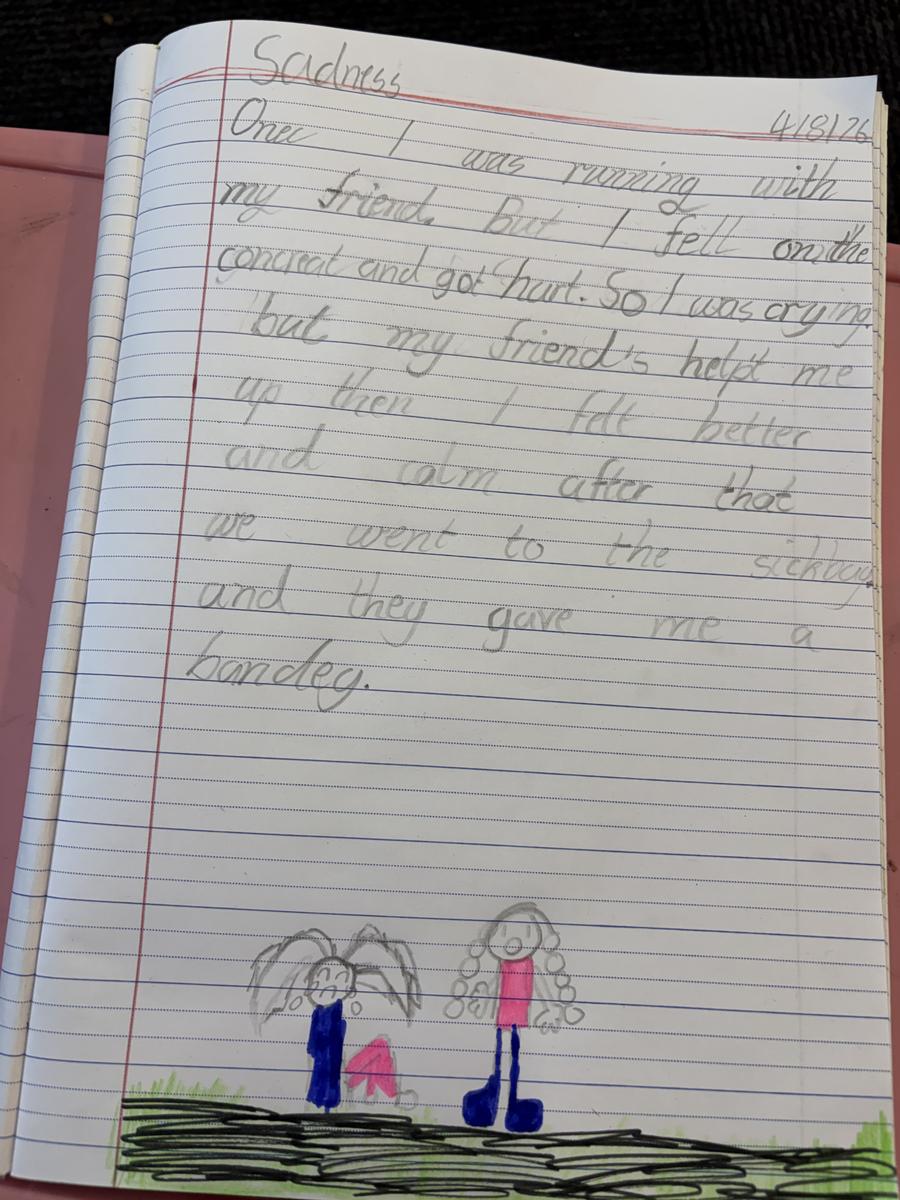 Sadness
4/8/26
Onec I was running with
my friend. But I fell on the
concreat and got hurt. So I was crying.
but my friend's helpt me
up then I felt better
and calm after that
we went to the sickbay
and they gave me a
bandeg.